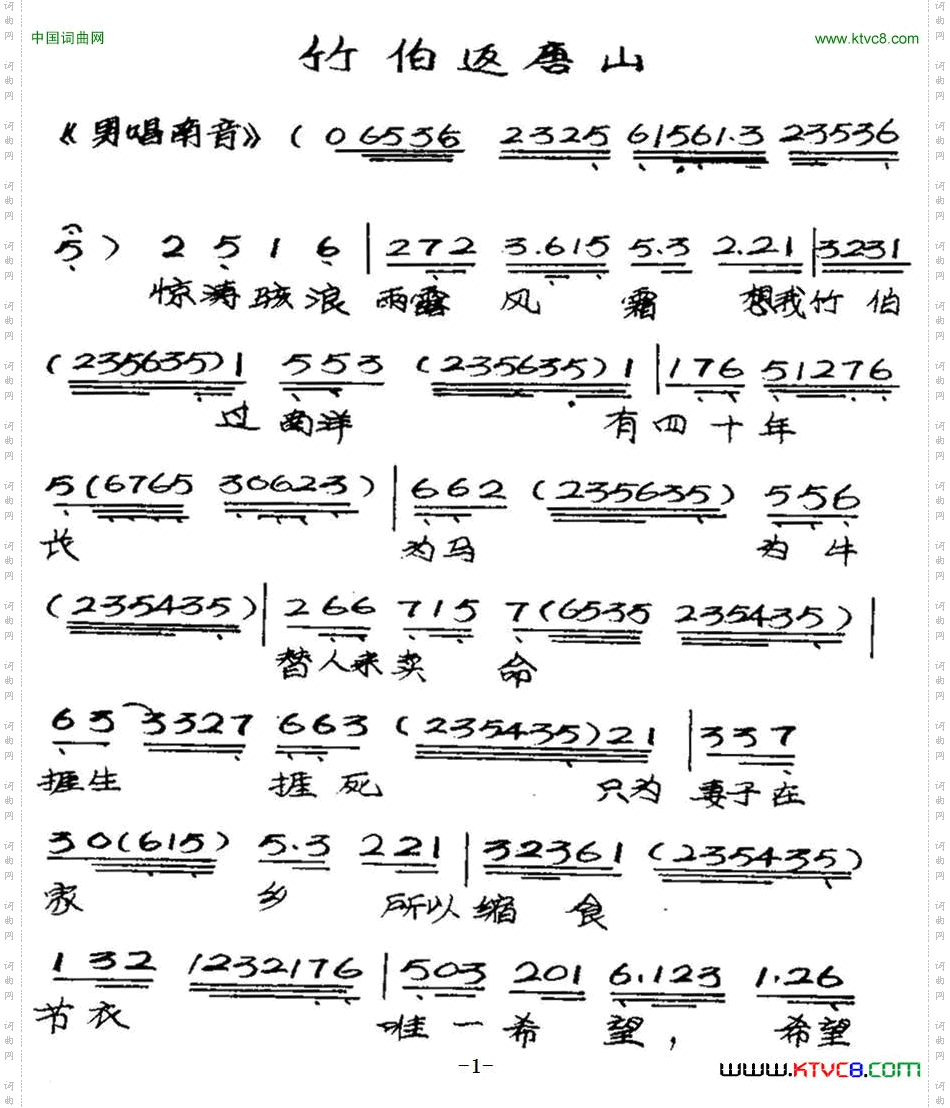 中国词曲网 www.ktvc8.com
竹伯返唐山
《男唱南音》 (0 6536 2325 61561.3 23536
5) 2 5 1 6 | 272 3.615 5.3 2.21 | 3231
惊涛骇浪 雨露 风 霜 想我竹伯
(235635)1 553 (235635)1 | 176 51276
过南洋 有四十年
5(6765 30623) | 662 (235635) 556
长 为马 为牛
(235435) | 266 715 7(6535 235435) |
替人来卖 命
63 3327 663 (235435)21 | 337
捱生 捱死 只为 妻子在
30(615) 5.3 221 | 32361 (235435)
家 乡 所以缩 食
1 32 1232176 | 503 201 6.123 1.26
节衣 唯一希望, 希望
-1-
www.KTVC8.COM